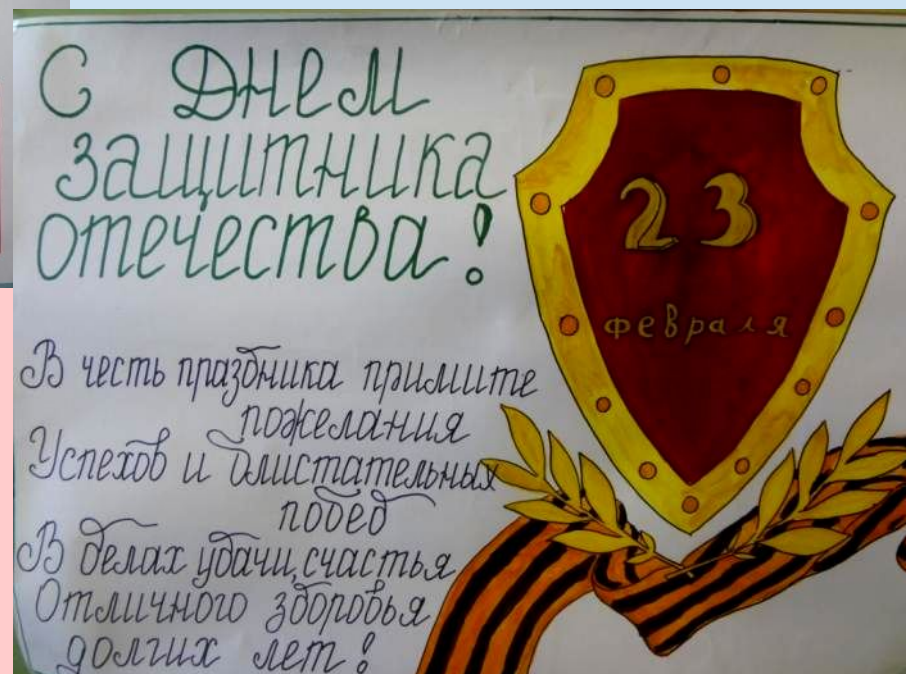 С Днем
защитника
отечества!
23
февраля
В честь праздника примите
пожелания
Успехов и блистательных
побед
В делах удачи, счастья
Отличного здоровья
долгих лет!